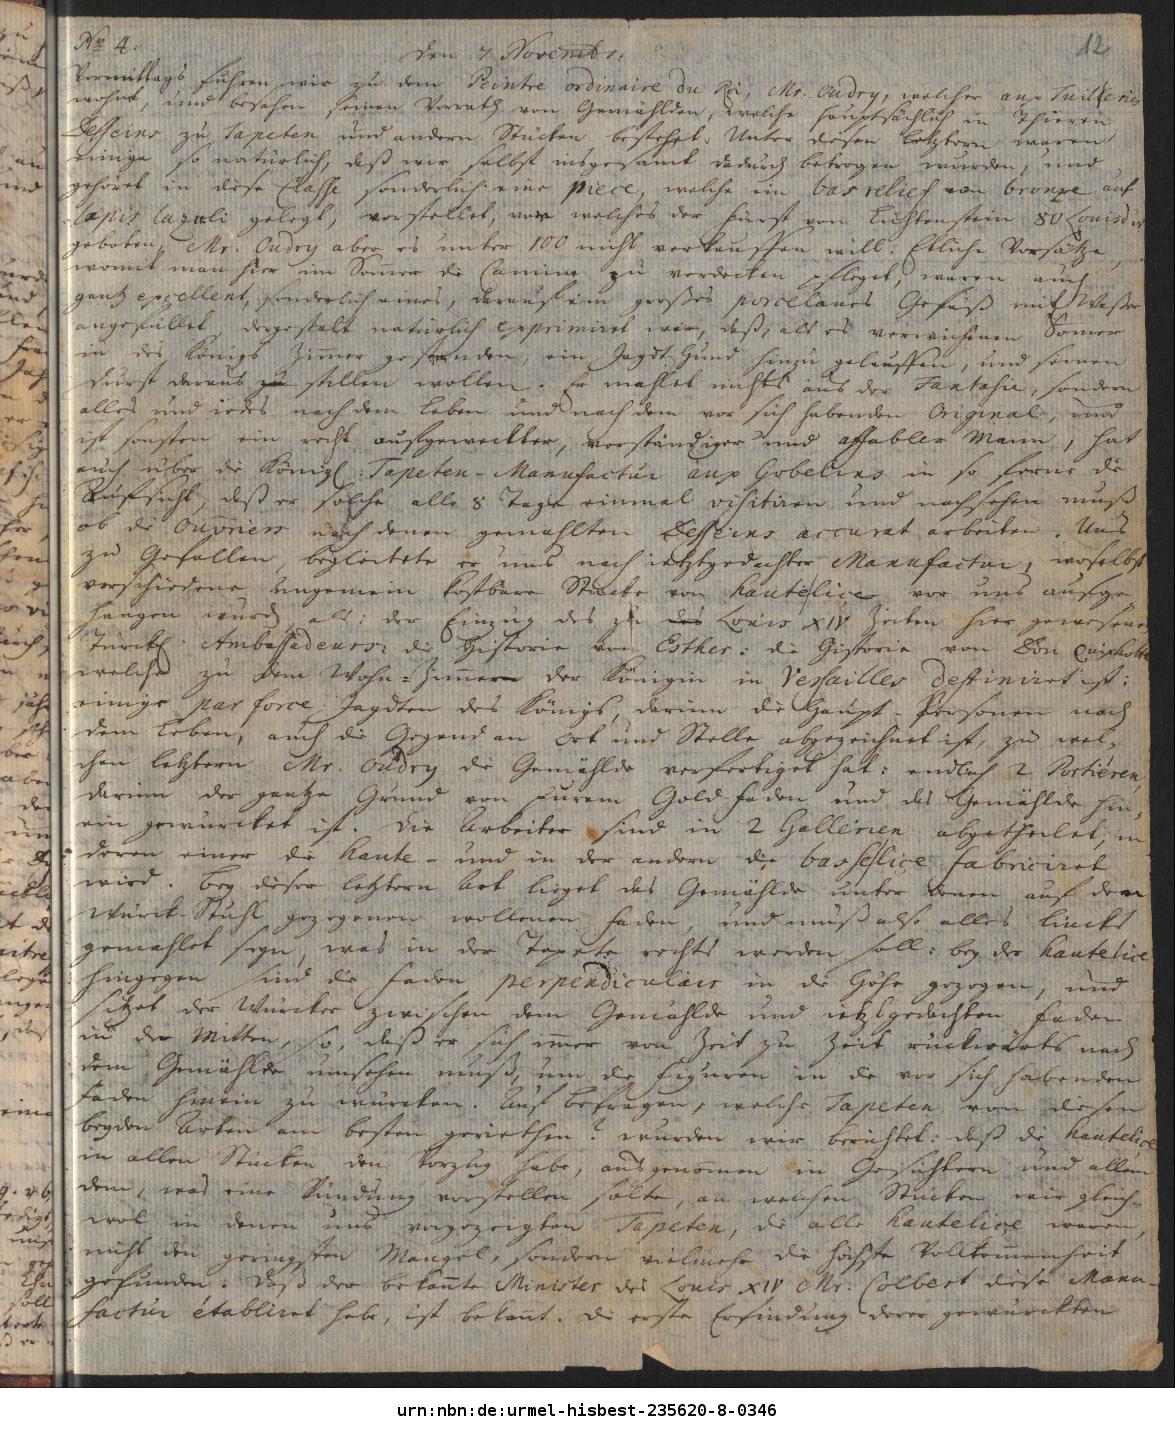 No 4.
12
den 7 Novembr.
Vormittags fuhren wir zu dem Peintre ordinaire du Roi, Mr. Oudry, welcher aux Tuilleries
wohnt, und besahen seinen Vorrath von Gemählden, welche hauptsächlich in Thieren,
Desseins zu Tapeten und andern Stücken bestehet. Unter diesen letztern waren
einige so natürlich, daß wir selbst insgesamt dadurch betrogen wurden, und
gehöret in diese Classe sonderlich eine piece, welche ein bas relief von bronze auf
lapis lazuli gelegt, vorstellet, vor welches der Fürst von Lichtenstein 80 Louisd'or
geboten, Mr. Oudry aber es unter 100 nicht verkauffen will. Etliche Vorsätze,
womit man hier im Somer die Camine zu verdecken pfleget, waren auch
gantz excellent, sonderlich eines, darauf ein großes porcelanes Gefäß mit Waßer
angefüllet, dergestalt natürlich exprimiret war, daß, als es verwichenen Somer
in des Königs Zimer gestanden, ein Jagdt-Hund hinzu gelauffen, und seinen
Durst daraus zu stillen wollen. Er mahlet nichts aus der Fantasie, sondern
alles und iedes nach dem Leben und nach dem vor sich habenden Original, und
ist sonsten ein recht aufgeweckter, verständiger und affabler Mann, hat
auch über die Königl: Tapeten-Manufactur aux Gobelins in so ferne die
Aufsicht, daß er solche alle 8 Tage einmal visitiren und nachsehen muß
ob die Ouvriers nach denen gemahlten Desseins accurat arbeiten. Uns
zu Gefallen, begleitete er uns nach ietztgedachter Manufactur, woselbst
verschiedene ungemein kostbare Stücke von hautelice vor uns aufge-
hangen wurden, als: der Einzug des zu des Louis XIV Zeiten hier gewesenen
Türckl: Ambassadeurs: die Historie von Esther: die Historie von Don Quixhotte
welche zu dem Wohn-Zimern der Königin in Versailles destiniret ist:
einige par force Jagdten des Königs, darinn die Haupt-Personen nach
dem Leben, auch die Gegend an Ort und Stelle abgezeichnet ist, zu wel-
chen letztern Mr. Oudry die Gemählde verfertiget hat: endlich 2 Portiéren,
darinn der gantze Grund von purem Gold-Faden und das Gemählde hin-
ein gewürcket ist. Die Arbeiter sind in 2 Gallerien abgetheilet, in
deren einer die haute- und in der andern die basselice fabriciret
wird. Bey dieser letztern Art lieget das Gemählde unter denen auf dem
Würck-Stuhl gezogenen wollenen Faden, und muß also alles lincks
gemahlet seyn, was in der Tapete rechts werden soll: bey der hautelice
hingegen sind die Faden perpendiculair in die Höhe gezogen, und
sitzet der Würcker zwischen dem Gemählde und ietztgedachten Faden
in der Mitten, so, daß er sich imer von Zeit zu Zeit rückwärts nach
dem Gemählde umsehen muß, um die Figuren in die vor sich habenden
Faden hinein zu würcken. Auf Befragen, welche Tapeten von diesen
beyden Arten am besten geriethen? wurden wir berichtet: daß die hautelice
in allen Stücken den Vorzug habe, ausgenomen in Gesichtern und allem
dem, was eine Ründung vorstellen solte, an welchen Stücken wir gleich-
wol in denen uns vorgezeigten Tapeten, die alle hautelice waren,
nicht den geringsten Mangel, sondern vielmehr die höchste Vollkomenheit
gefunden. Daß der bekante Minister des Louis XIV Mr. Colbert diese Manu-
factur établiret habe, ist bekant. Die erste Erfindung derer gewürckten
urn:nbn:de:urmel-hisbest-235620-8-0346